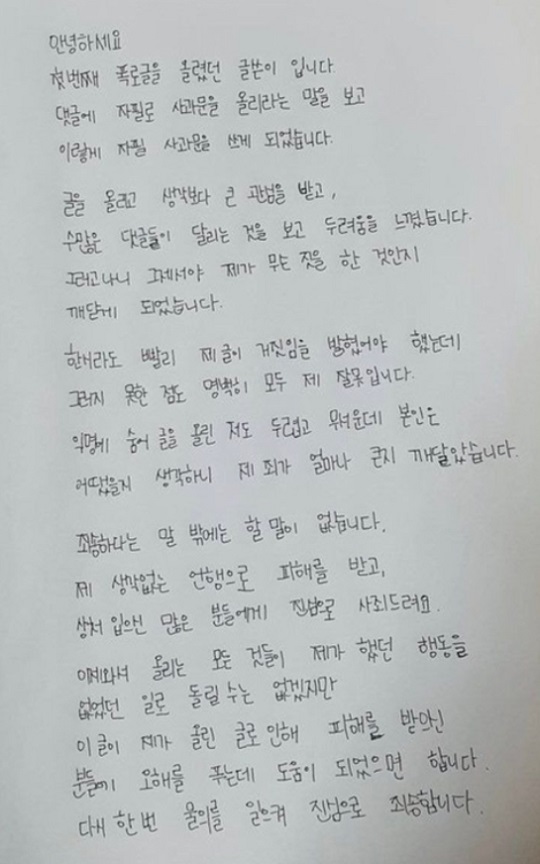 안녕하세요
첫번째 폭로글을 올렸던 글쓴이 입니다.
댓글에 자필로 사과문을 올리라는 말을 보고
이렇게 자필 사과문을 쓰게 되었습니다.
글을 올리고 생각보다 큰 관심을 받고,
수많은 댓글들이 달리는 것을 보고 두려움을 느꼈습니다.
그러고나니 그제서야 제가 무슨 짓을 한 것인지
깨닫게 되었습니다.
한시라도 빨리 제 글이 거짓임을 밝혔어야 했는데
그러지 못한 점도 명백히 모두 제 잘못입니다.
익명에 숨어 글을 올린 저도 두렵고 무서운데 본인은
어땠을지 생각하니 제 죄가 얼마나 큰지 깨달았습니다.
죄송하다는 말 밖에는 할 말이 없습니다.
제 생각없는 언행으로 피해를 받고,
상처 입으신 많은 분들에게 진심으로 사죄드려요.
이제와서 올리는 모든 것들이 제가 했던 행동을
없었던 일로 돌릴 수는 없겠지만
이 글이 제가 올린 글로 인해 피해를 받으신
분들께 오해를 푸는데 도움이 되었으면 합니다.
다시 한 번 물의를 일으켜 진심으로 죄송합니다.